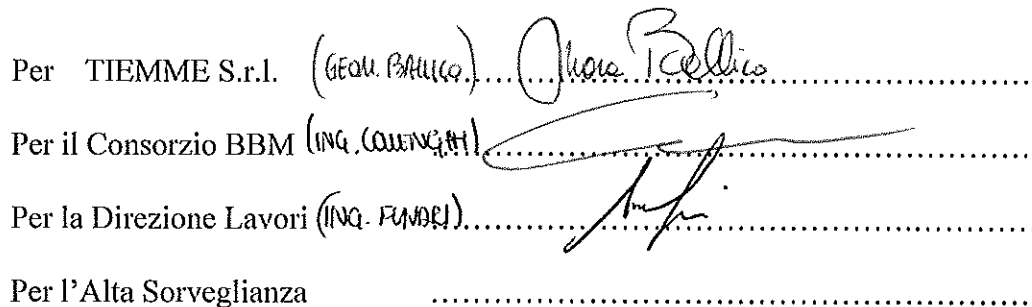 Per TIEMME S.r.l. (GEOM. BALLICO)..........................................
Per il Consorzio BBM (ING. ..........................................
Per la Direzione Lavori (ING. FUNARI)..........................................
Per l'Alta Sorveglianza ..........................................